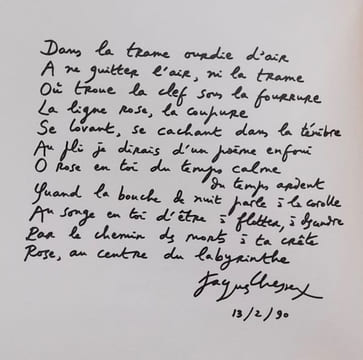 Dans la trame ourdie d'air
A ne quitter l'air, ni la trame
Où troue la clef sous la fourrure
La ligne rose, la coupure
Se lovant, se cachant dans la ténèbre
Au pli je dirais d'un poème enfoui
O Rose en toi du temps calme
Du temps ardent
Quand la bouche de nuit parle à la corolle
Au songe en toi d'être à flotter, à descendre
Par le chemin des morts à ta crête
Rose, au centre du labyrinthe
Jacques Chessex
13/2/90